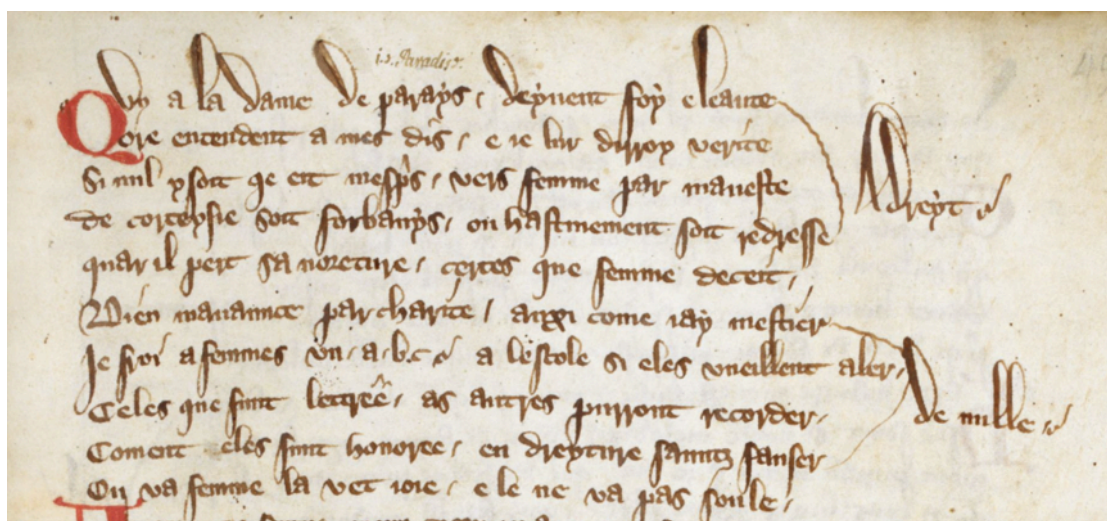 i.e. Paradise.
Quy a la dame de parays. deyuent foy e leaute
Ore entendent a mes dis. e ie lur dirroy verite
Si nul ysoit qe eit mespris. vers femme par maueste
de corteysie soit forbanys. ou hastiuement soit redresse
Adreyt.
quar il pert sa noreture. certes que femme deceit.
Bien mauannce par charite. auxi come iay mestier
Je froi a femmes vn. a. b. c. a lescole si eles vueillent aler.
Celes que sunt lettree. as autres purront recorder.
Coment eles sunt honoree. en dreyture sauntz fauser
De mille.
Ou va femme la vet ioie. e le ne va pas soule.